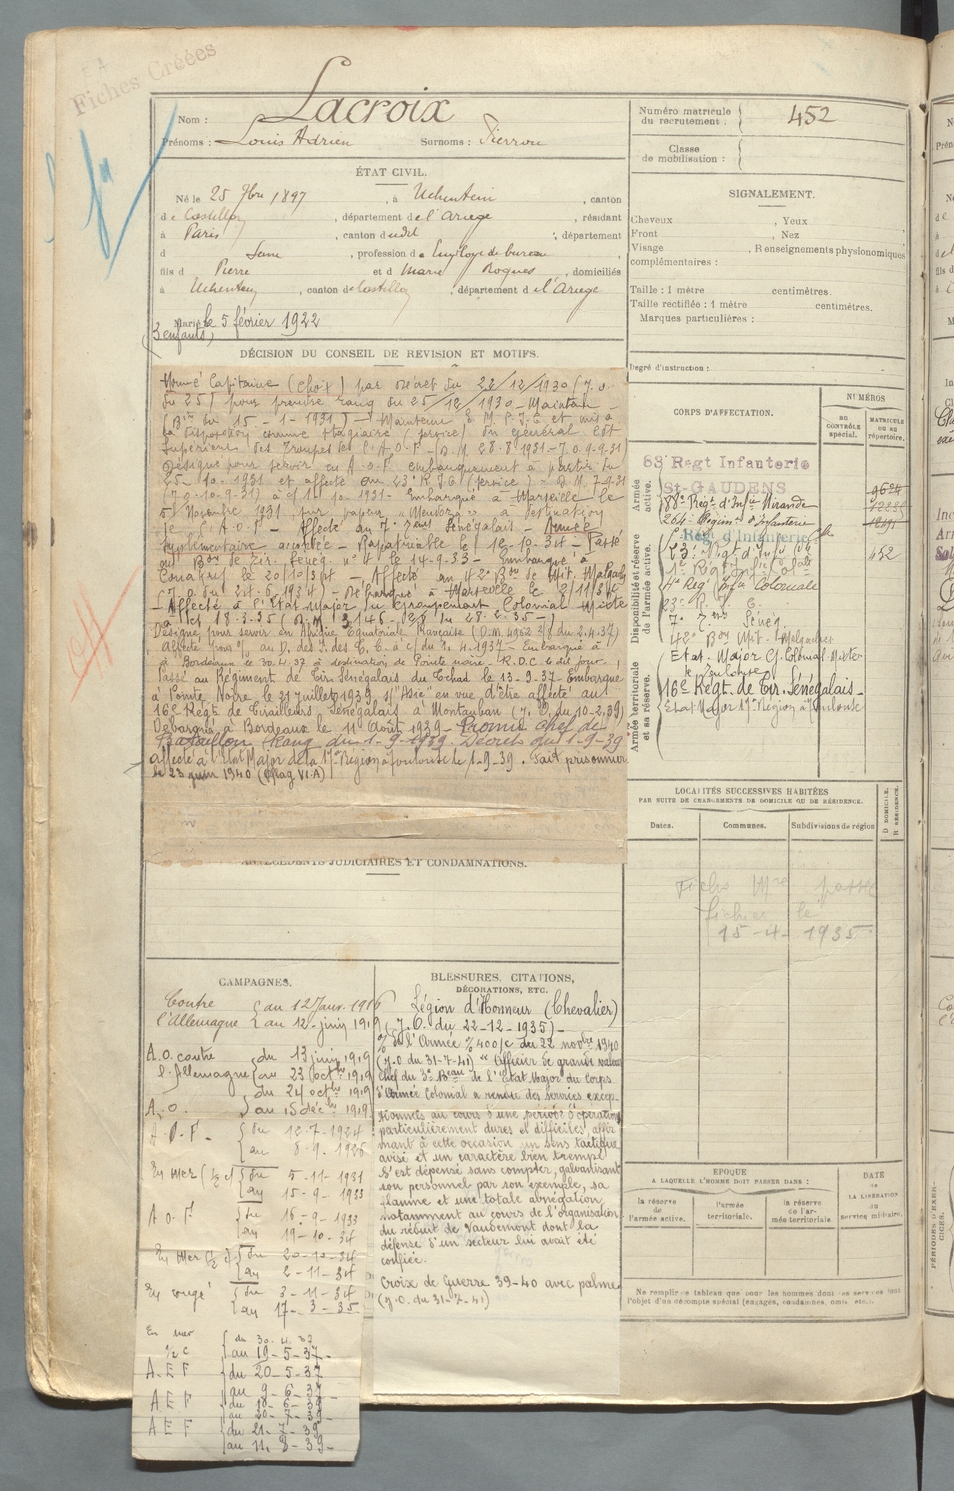 Fiches Créées
Lacroix
Nom :
Prénoms : Louis Adrien Surnoms : Pierrou
Numéro matricule
du recrutement : 452
Classe
de mobilisation :
ÉTAT CIVIL.
Né le 25 9bre 1897, à Uchentein, canton
de Castillon, département de l'Ariège, résidant
à Paris, canton dudit, département
d Seine, profession d'Employé de bureau
fils d Pierre et d Marie Roques, domiciliés
à Uchentein, canton de Castillon, département de l'Ariège
Marié le 5 février 1922
(3 enfants)
SIGNALEMENT.
Cheveux , Yeux
Front , Nez
Visage , Renseignements physionomiques
complémentaires :
Taille : 1 mètre centimètres.
Taille rectifiée : 1 mètre centimètres.
Marques particulières :
Degré d'instruction :
DÉCISION DU CONSEIL DE REVISION ET MOTIFS.
Nommé Capitaine (choix) par décret du 22/12/1930 (J.O.
du 25) pour prendre rang du 25/12/1930 - Maintenu
15-1-1931) - Maintenu E.M.P.I.E et mis à
la disposition comme stagiaire (service) du Général Cdt
Supérieur des Troupes de l'A.O.F - D.M. 28.8.1931 - J.O. 9-9-31)
Désigné pour servir en A.O.F embarquement à partir du
25-10-1931 et affecté au 23e R.I.C (service) - D.M. 7-9-31
(J.O. 10-9-31) à c/ 10-1931 - Embarqué à Marseille le
5 Novembre 1931 sur vapeur "Mendoza" à destination
de l'A.O.F - Affecté au 7e Sénégalais - Année
supplémentaire accordée - Rapatriable le 12-10-34 - Passé
au Bon de Tir. Sénég. n° 4 le 14-9-33 - Embarqué à
Conakry le 20/10/34 - Affecté au 42e Bon de Mit. Malgache
(J.O. du 24-6-1934) - Débarqué à Marseille le 2/11/34
- Affecté à l'Etat Major du Groupement Colonial Mixte
à c/ 18-3-35 (D.M. 3146 du 28-2-35 -)
Désigné pour servir en Afrique Equatoriale Française (D.M. 4962 2/8 du 2.4.37)
au D. des I. des T.C. à c/ du 1.4.1937 - Embarqué à
à Bordeaux le 30.4.37 à destination de Pointe noire - R.D.C 6 du jour,
Passé au Régiment de Tir. Sénégalais du Tchad le 13-9-37 - Embarqué
à Pointe Noire le 21 juillet 1939 s/"Asie" en vue d'être affecté au
16e Régt de Tirailleurs Sénégalais à Montauban (J.O. du 10-2-39)
Débarqué à Bordeaux le 11 Août 1939 - Promu chef de
Bataillon Rang du 1-9-1939. Décret du 1-9-39
affecté à l'Etat Major de la 17e Région à Toulouse le 1-9-39. Fait prisonnier
le 23 juin 1940 (Oflag VI.A)
CORPS D'AFFECTATION.
NUMÉROS
au
CONTRÔLE
spécial.
MATRICULE
ou au
répertoire.
Armée
active.
Disponibilité et réserve
de l'armée active.
Armée territoriale
et sa réserve.
83e Regt Infanterie
St-GAUDENS
88e Régt d'Infie Mirande
264e Régiment d'Infanterie
Regt d'Infanterie Cle
23e Régt d'Infie Cle 452
1er Régt Infie Colale
4e Régt Infie Coloniale
23e R.I.C.
7e Sénég.
42e Bon Mit. Malgaches
Etat-Major Gt Colonial Mixte
de Toulouse
16e Régt de Tir. Sénégalais
Etat Major 17e Région à Toulouse
LOCALITÉS SUCCESSIVES HABITÉES
PAR SUITE DE CHANGEMENTS DE DOMICILE OU DE RÉSIDENCE.
Dates. Communes. Subdivisions de région
D DOMICILE.
R RÉSIDENCE.
Fiche Mle passé
fichier le
15-4-1935
ANTÉCÉDENTS JUDICIAIRES ET CONDAMNATIONS.
CAMPAGNES.
Contre { au 12 Janv. 1916
l'Allemagne { au 12-juin 1919
A.O. contre du 13 juin 1919
l'Allemagne au 23 Octbre 1919
du 24 octbre 1919
A.O. au 15 décbre 1919
A.O.F- du 12-7-1924
au 8-9-1926
En mer (1/2 c) du 5-11-1931
au 15-9-1933
A O F du 16-9-1933
au 19-10-34
En Mer (1/2 c) du 20-10-34
au 2-11-34
En congé du 3-11-34
au 17-3-35
En mer du 30.4.37
1/2 C au 19-5-37-
A.E.F du 20-5-37
au 9-6-37-
A E F du 10-6-39
au 20-7-39-
A E F du 21-7-39
au 11.8-39-
BLESSURES, CITATIONS,
DÉCORATIONS, ETC.
Légion d'Honneur (Chevalier)
(J.O. du 22-12-1935) -
% de l'Armée n° 400/c du 22 novbre 1940
(J.O. du 31-7-41) "Officier de grande valeur
chef du 3e Beau de l'Etat Major du Corps
d'Armée Colonial a rendu des services excep-
tionnels au cours d'une période d'opérations
particulièrement dures et difficiles, affir
mant à cette occasion un sens tactique
avisé et un caractère bien trempé
S'est dépensé sans compter, galvanisant
son personnel par son exemple, sa
flamme et une totale abnégation
notamment au cours de l'organisation
du réduit de Vaudémont dont la
défense d'un secteur lui avait été
confiée.
Croix de Guerre 39-40 avec palme
(J.O. du 31-7-41)
EPOQUE
A LAQUELLE L'HOMME DOIT PASSER DANS :
la réserve
de
l'armée active.
l'armée
territoriale.
la réserve
de l'ar-
mée territoriale
DATE
de
LA LIBÉRATION
du
service militaire.
Ne remplir ce tableau que pour les hommes dont les services font
l'objet d'un décompte spécial (engagés, condamnés, omis, etc.).